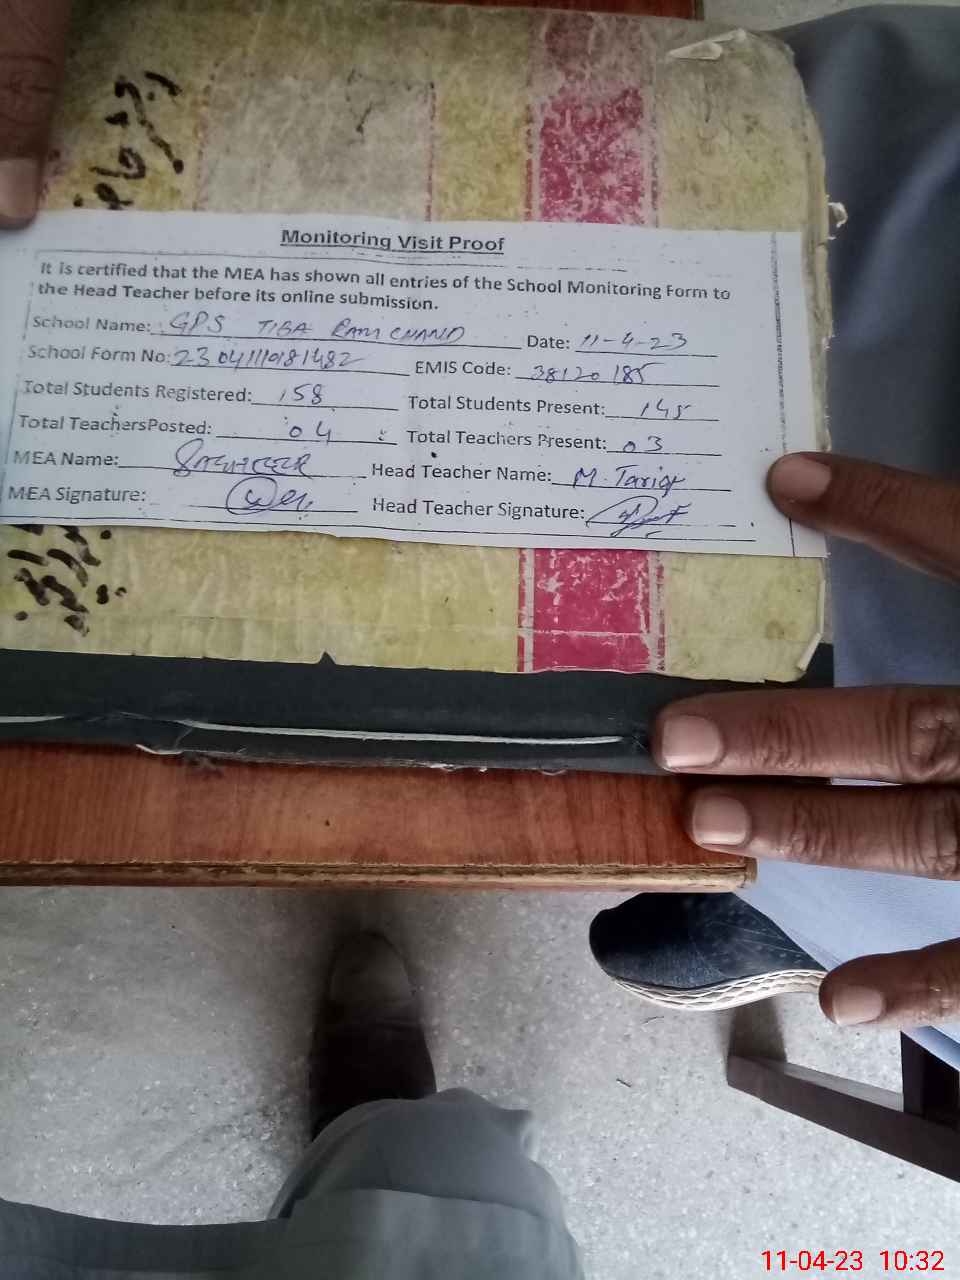 Monitoring Visit Proof
It is certified that the MEA has shown all entries of the School Monitoring Form to
the Head Teacher before its online submission.
School Name: GPS TIBA RAM CHAND Date: 11-4-23
School Form No: 2304111018 1482 EMIS Code: 38120185
Total Students Registered: 158 Total Students Present: 145
Total TeachersPosted: 04 Total Teachers Present: 03
MEA Name: Head Teacher Name: M. Tariq
MEA Signature: Head Teacher Signature:
11-04-23 10:32